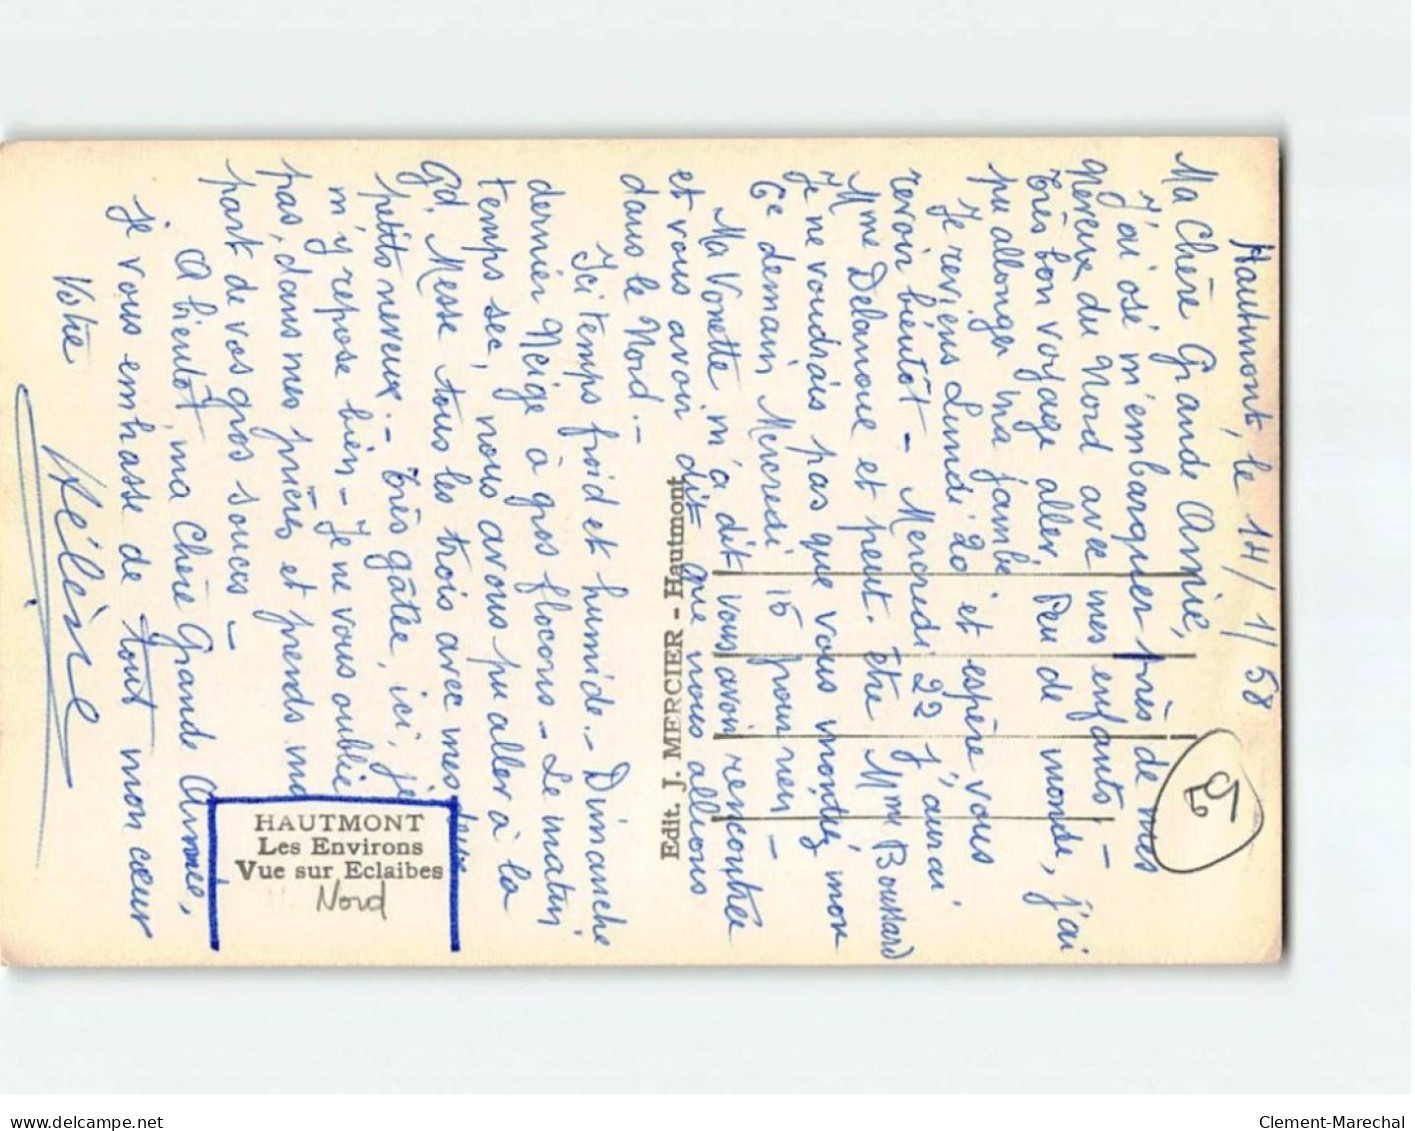 Hautmont, le 14/1/58
Ma Chère Grande Annie,
J'ai osé m'embarquer près de mes
Neveux du Nord avec mes enfants, -
très bon voyage aller, Peu de monde, j'ai
pu allonger ma jambe
Je reviens Lundi 20 et espère vous
revoir bientôt - Mercredi 22 j'aurai
Mme Delanoue et peut-être Mme Boussard
Je ne voudrais pas que vous montiez, mon
6e demain Mercredi 15 pour rien -
Ma Vonette m'a dit vous avoir rencontrée
et vous avoir dit que nous allions
dans le Nord. -
Ici temps froid et humide. - Dimanche
dernier Neige à gros flocons - Le matin
temps sec, nous avons pu aller à la
Gd. Messe tous les trois avec mes deux
petits neveux. - très gâtée, ici, je
m'y repose bien - Je ne vous oublie
pas, dans mes prières et prends ma
part de vos gros soucis -
A bientôt, ma Chère Grande Annie,
je vous embrasse de tout mon cœur
Votre
Hélène
Edit. J. MERCIER - Hautmont
HAUTMONT
Les Environs
Vue sur Eclaibes
Nord
delcampe.net
Clement-Marechal